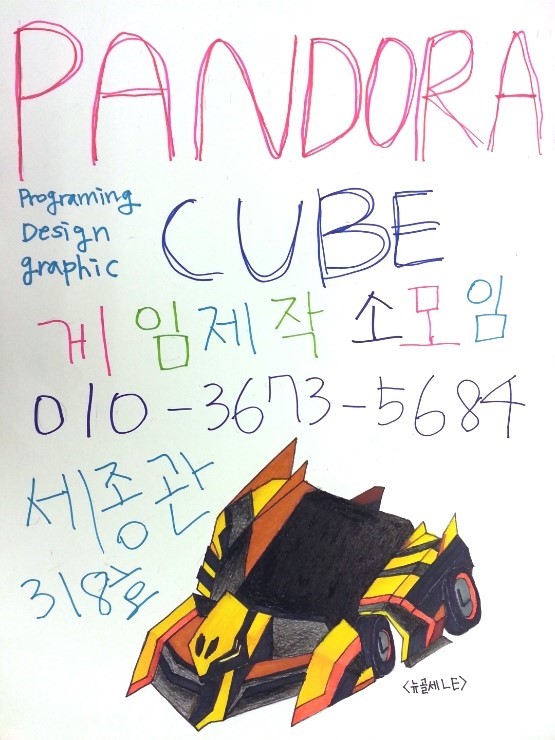 PANDORA
Programing
Design
graphic
CUBE
게임제작 소모임
010-3673-5684
세종관
318호
<뉴골세LE>